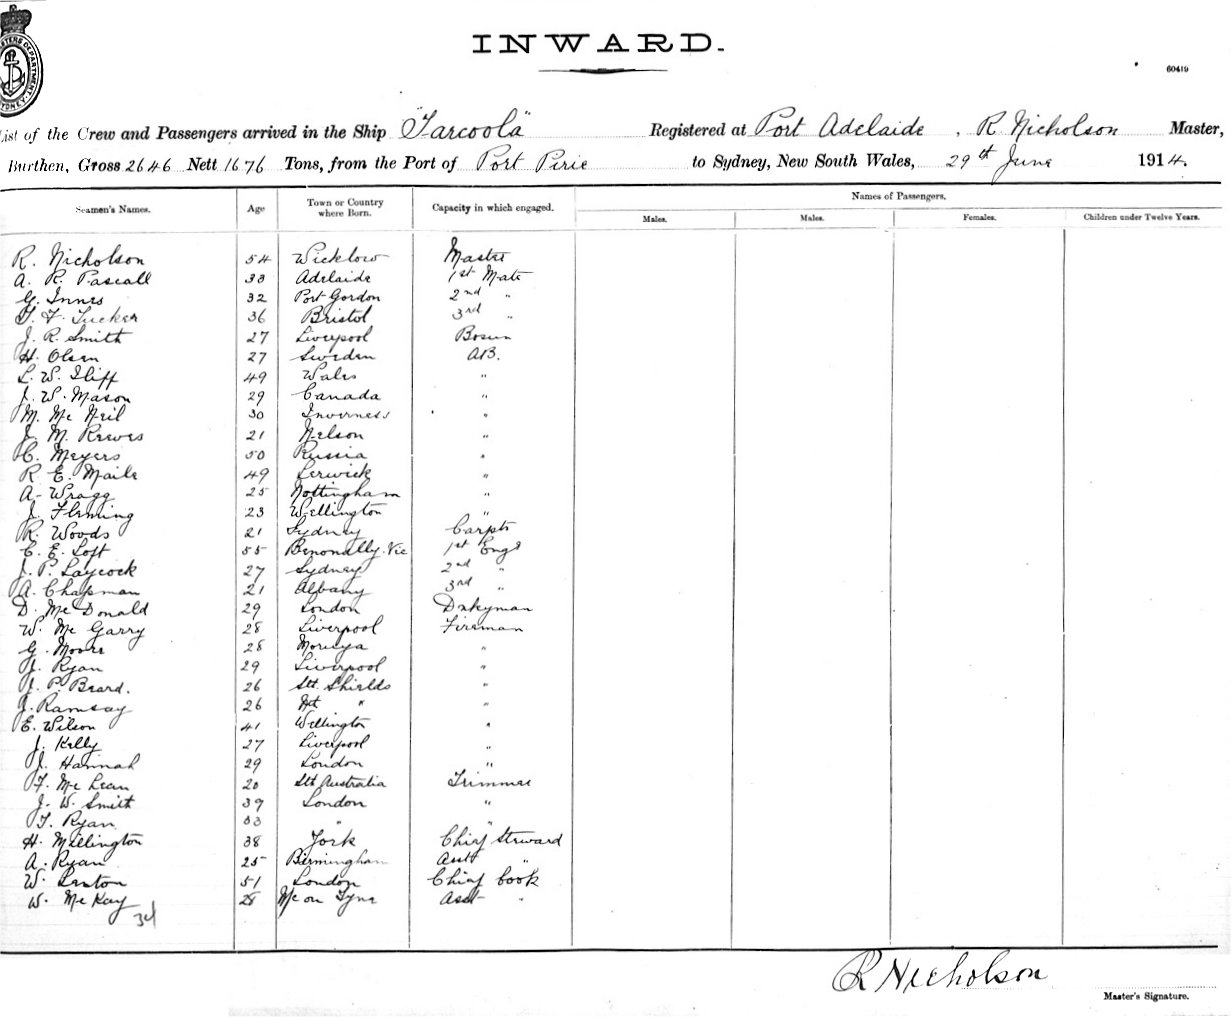 INWARD.
60419
List of the Crew and Passengers arrived in the Ship "Tarcoola" Registered at Port Adelaide, R Nicholson Master,
Burthen, Gross 2646 Nett 1676 Tons, from the Port of Port Pirie to Sydney, New South Wales, 29th June 1914.
Seamen's Names. Age Town or Country where Born. Capacity in which engaged. Names of Passengers.
Males. Males. Females. Children under Twelve Years.
R. Nicholson 54 Wicklow Master
A. R. Pascall 33 Adelaide 1st Mate
G. Innes 32 Port Gordon 2nd "
T. F. Tucker 36 Bristol 3rd "
J. R. Smith 27 Liverpool Bosun
H. Olsen 27 Sweden AB.
L. W. Iliff 49 Wales "
J. W. Mason 29 Canada "
M. Mc Neil 30 Inverness "
J. M. Reeves 21 Nelson "
C. Meyers 50 Russia "
R E. Maile 49 Lerwick "
A. Wragg 25 Nottingham "
J. Fleming 23 Wellington "
R. Woods 21 Sydney Carptr
C. E. Loft 55 Vic 1st Engr
J. P. Laycock 27 Sydney 2nd "
A. Chapman 21 Albany 3rd "
D. McDonald 29 London Dnkyman
W. Mc Garry 28 Liverpool Fireman
G. Moore 28 Moruya "
J. Ryan 29 Liverpool "
J. P. Beard. 26 Sth Shields "
J. Ramsay 26 Nth " "
E. Wilson 41 Wellington "
J. Kelly 27 Liverpool "
J. Hannah 29 London "
F. Mc Lean 20 Sth Australia Trimmer
J. W. Smith 39 London "
T. Ryan 33 " "
H. Millington 38 York Chief Steward
A. Ryan 25 Birmingham Asst "
W. Sexton 51 London Chief Cook
W. McKay 28 Nc on Tyne Asst "
34
R Nicholson
Master's Signature.